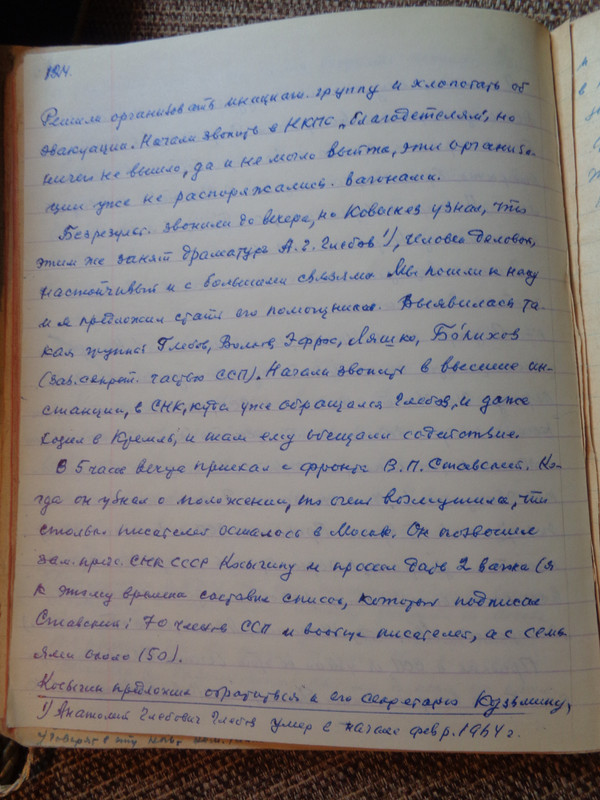 124.
Решили организовать инициат. группу и хлопотать об
эвакуации. Начали звонить в НКПС „благодетелям“, но
ничего не вышло, да и не могло выйти, эти организа-
ции уже не распоряжались вагонами.
Безрезульт. звонили до вечера, но Ковынев узнал, что
этим же занят драматург А. Г. Глебов¹), человек деловой,
настойчивый и с большими связями. Мы пошли к нему
и я предложил стать его помощником. Выявилась та-
кая группа: Глебов, Вольпе, Эфрос, Ляшко, Бо́рихов
(зав. секрет. частью ССП). Начали звонить в высшие ин-
станции, в СНК, куда уже обращался Глебов, и даже
ходил в Кремль, и там ему обещали содействие.
В 5 часов вечера приехал с фронта В. П. Ставский. Ко-
гда он узнал о положении, то очень возмутился, что
столько писателей осталось в Москве. Он позвонил
зам. пред. СНК СССР Косыгину и просил дать 2 вагона (я
к этому времени составил список, который подписал
Ставский: 70 членов ССП и вообще писателей, а с семь-
ями около 150).
Косыгин предложил обратиться к его секретарю Кузьмину,
1) Анатолий Глебович Глебов умер в начале февр. 1964 г.